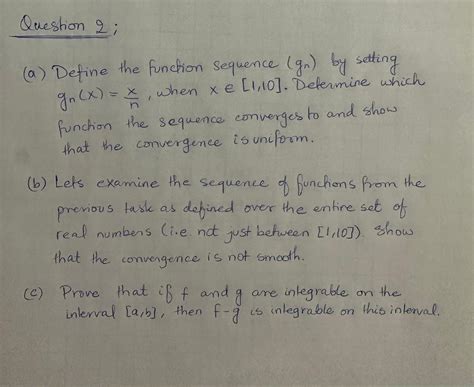 Question 2;
(a) Define the function sequence (gn) by setting
gn(x) = x/n, when x ∈ [1,10]. Determine which
function the sequence converges to and show
that the convergence is uniform.
(b) Lets examine the sequence of functions from the
previous task as defined over the entire set of
real numbers (i.e not just between [1,10]). Show
that the convergence is not smooth.
(c) Prove that if f and g are integrable on the
interval [a,b], then f-g is integrable on this interval.